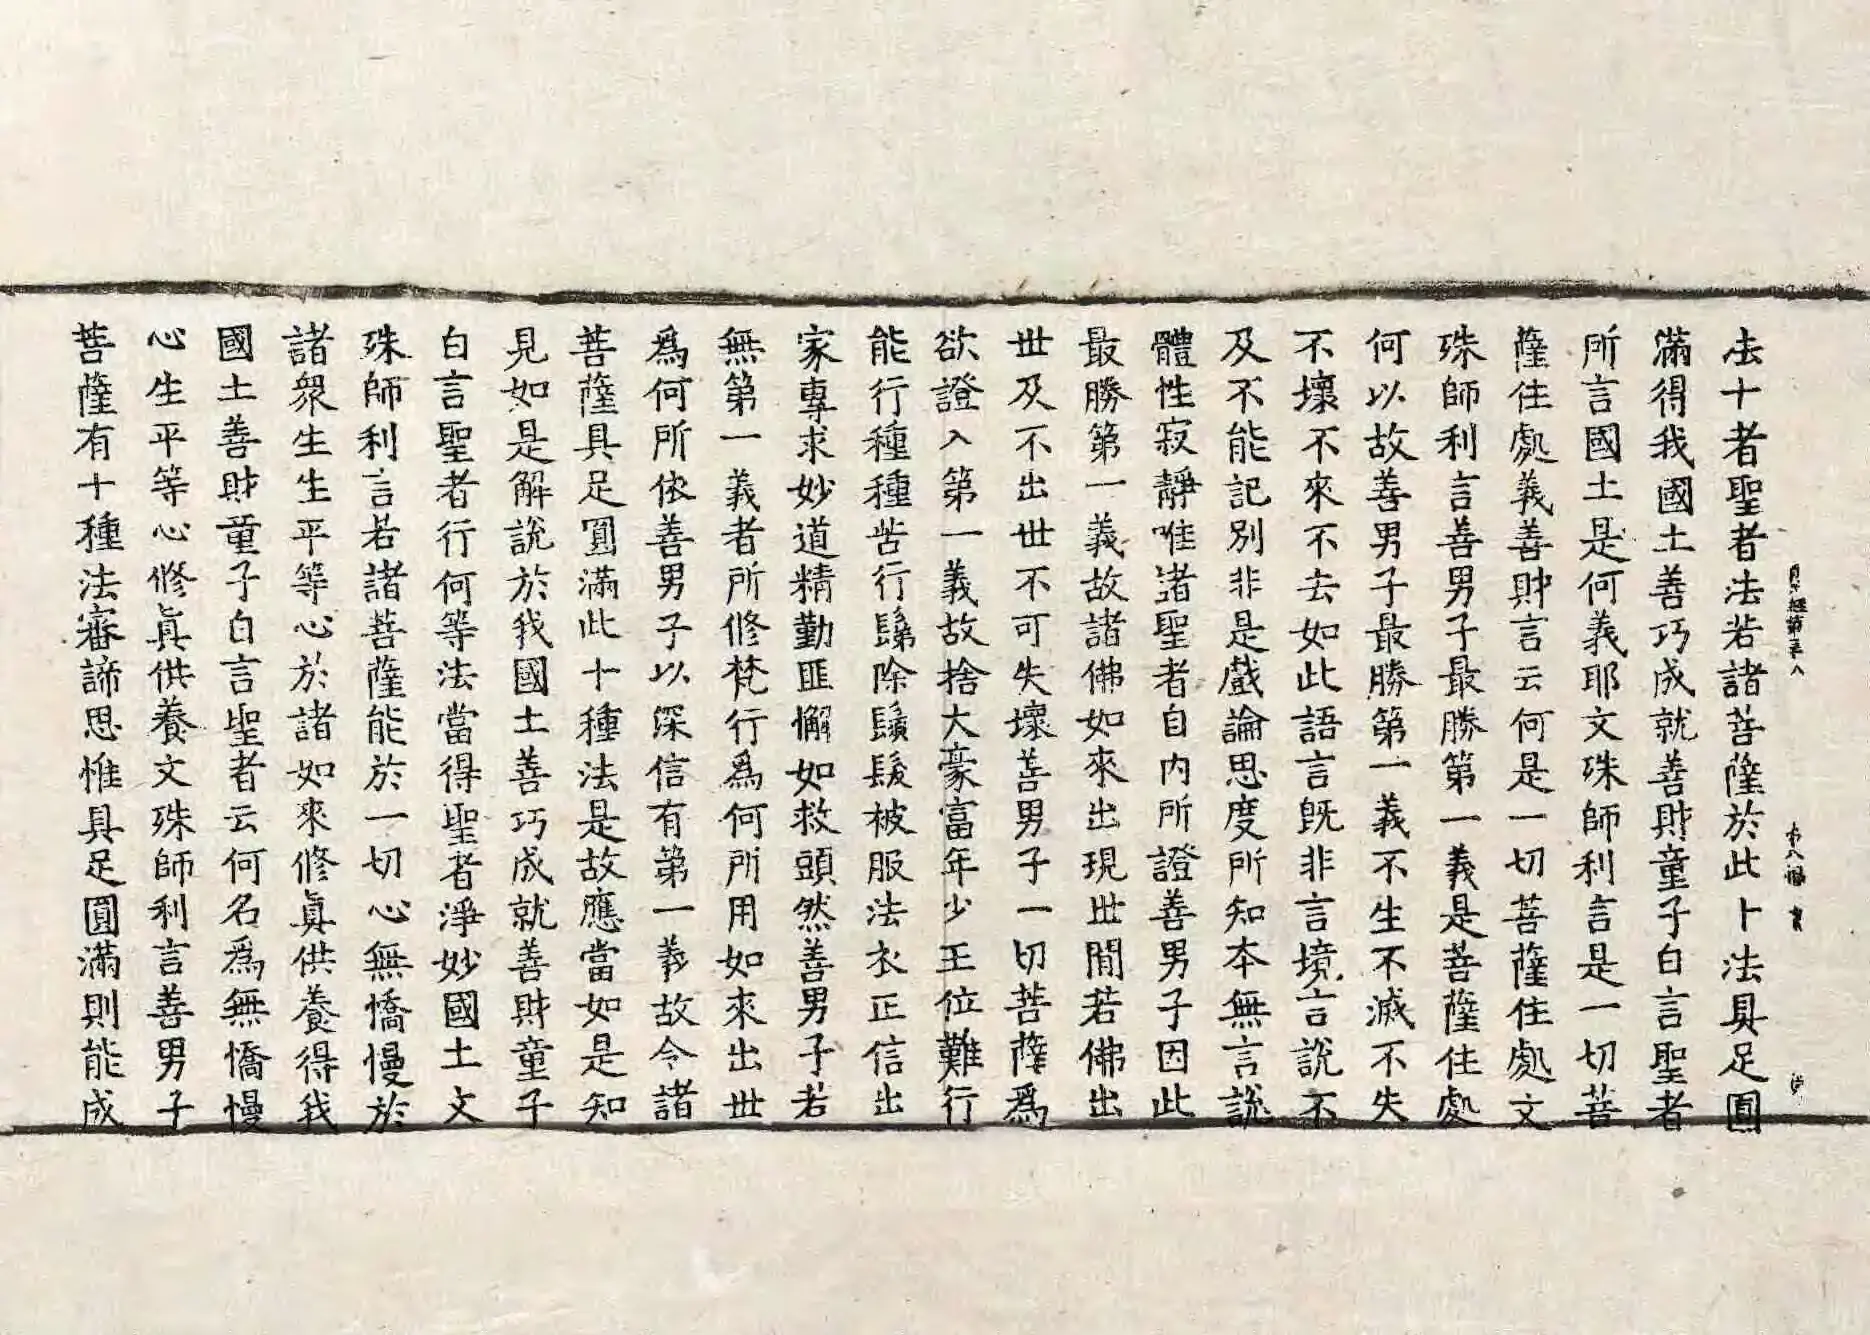 法十者聖者法若諸菩薩於此十法具足圓
滿得我國土善巧成就善財童子白言聖者
所言國土是何義耶文殊師利言是一切菩
薩住處義善財言云何是一切菩薩住處文
殊師利言善男子最勝第一義是菩薩住處
何以故善男子最勝第一義不生不滅不失
不壞不來不去如此語言既非言境言說不
及不能記別非是戲論思度所知本無言說
體性寂靜唯諸聖者自內所證善男子因此
最勝第一義故諸佛如來出現世間若佛出
世及不出世不可失壞善男子一切菩薩為
欲證入第一義故捨大豪富年少王位難行
能行種種苦行鬀除鬚髮被服法衣正信出
家專求妙道精勤匪懈如救頭然善男子若
無第一義者所修梵行為何所用如來出世
為何所依善男子以深信有第一義故令諸
菩薩具足圓滿此十種法是故應當如是知
見如是解說於我國土善巧成就善財童子
白言聖者行何等法當得聖者淨妙國土文
殊師利言若諸菩薩能於一切心無憍慢於
諸眾生生平等心於諸如來修真供養得我
國土善財童子白言聖者云何名為無憍慢
心生平等心修真供養文殊師利言善男子
菩薩有十種法審諦思惟具足圓滿則能成